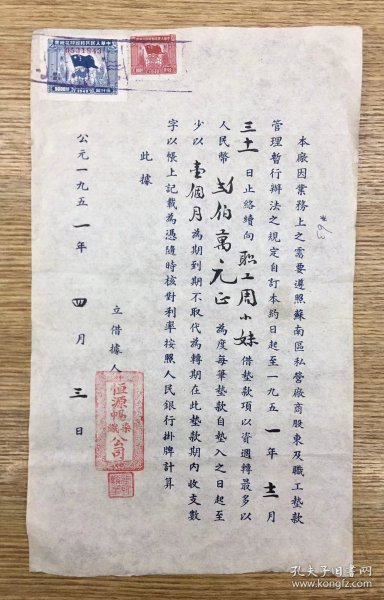 本廠因業務上之需要遵照蘇南區私營廠商股東及職工墊款
管理暫行辦法之規定自訂本約日起至一九五一年十二月
三十一日止絡續向職工周小妹借墊款項以資週轉最多以
人民幣貳佰萬元正為度每筆墊款自墊入之日起至
少以壹個月為期到期不取代為轉期在此墊款期內收支數
字以帳上記載為憑隨時核對利率按照人民銀行掛牌計算
此據
立借據人
恒源暢染織公司
公元一九五一年四月三日
*63
0531843
孔夫子旧书网
www.kongfz.com